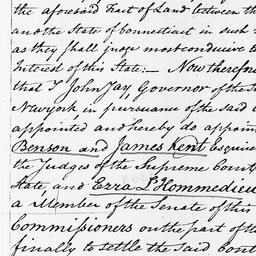 the aforesaid Tract of Land between th
and the State of Connecticut in such m
as they shall judge most conducive to
Interest of this State:— Now therefore
that I John Jay Governor of the
Newyork, in pursuance of the said
appointed and hereby do appoin
Benson and James Kent Esquire
the Judges of the Supreme Court
State and Ezra L'Hommedieu
a Member of the Senate of this
Commissioners on the part of th
finally to settle the said Cont